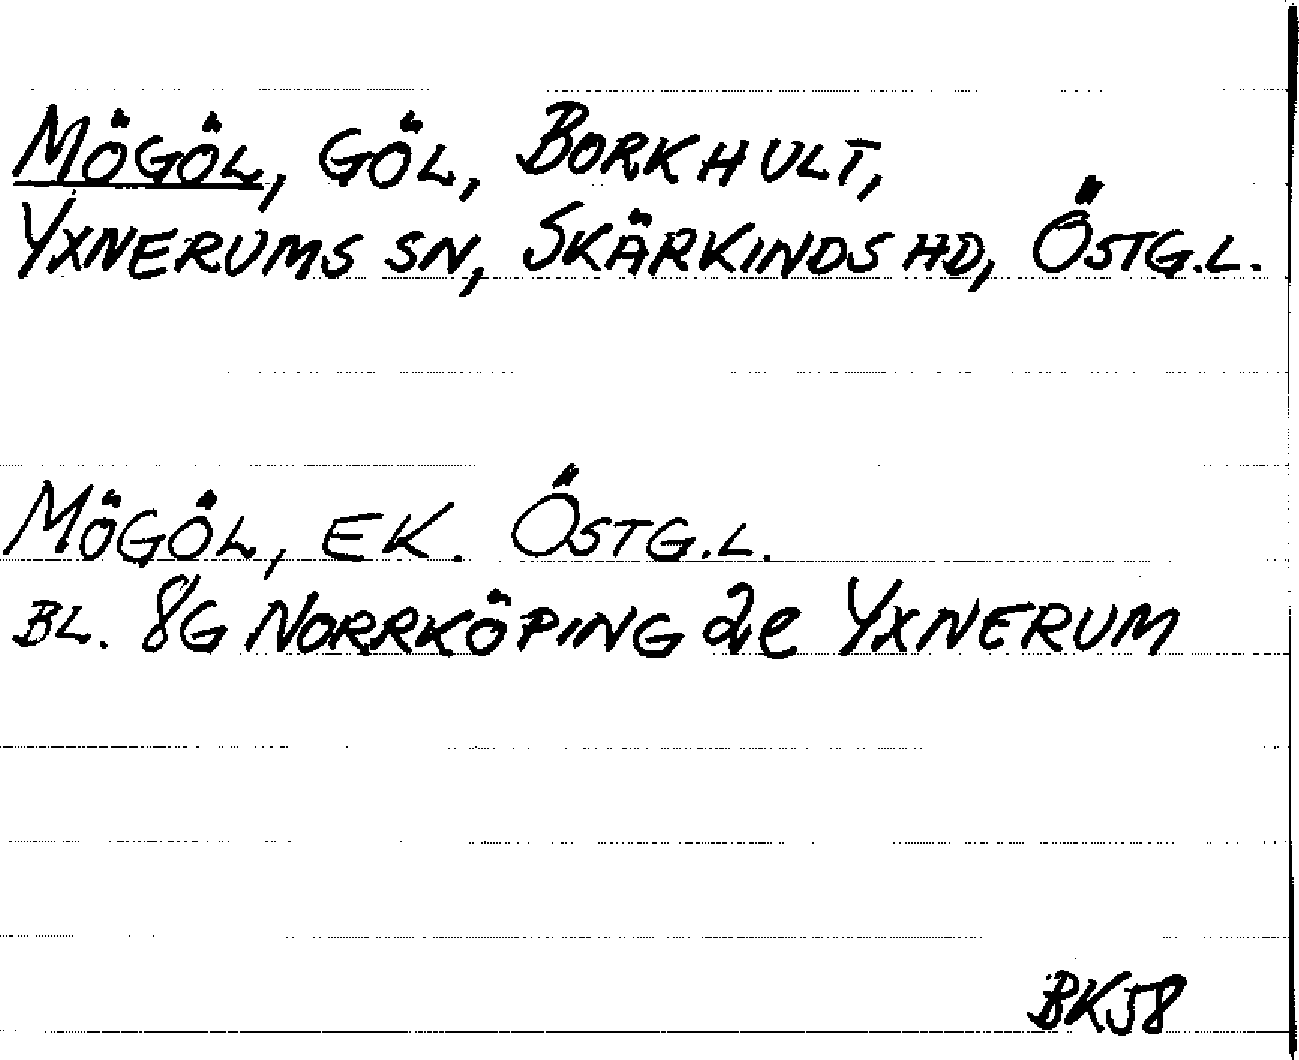 MÖGÖL, GÖL, BORKHULT,
YXNERUMS SN, SKÄRKINDS HD, ÖSTG.L.
MÖGÖL, EK. ÖSTG.L.
BL. 8G NORRKÖPING 2e YXNERUM
BK58